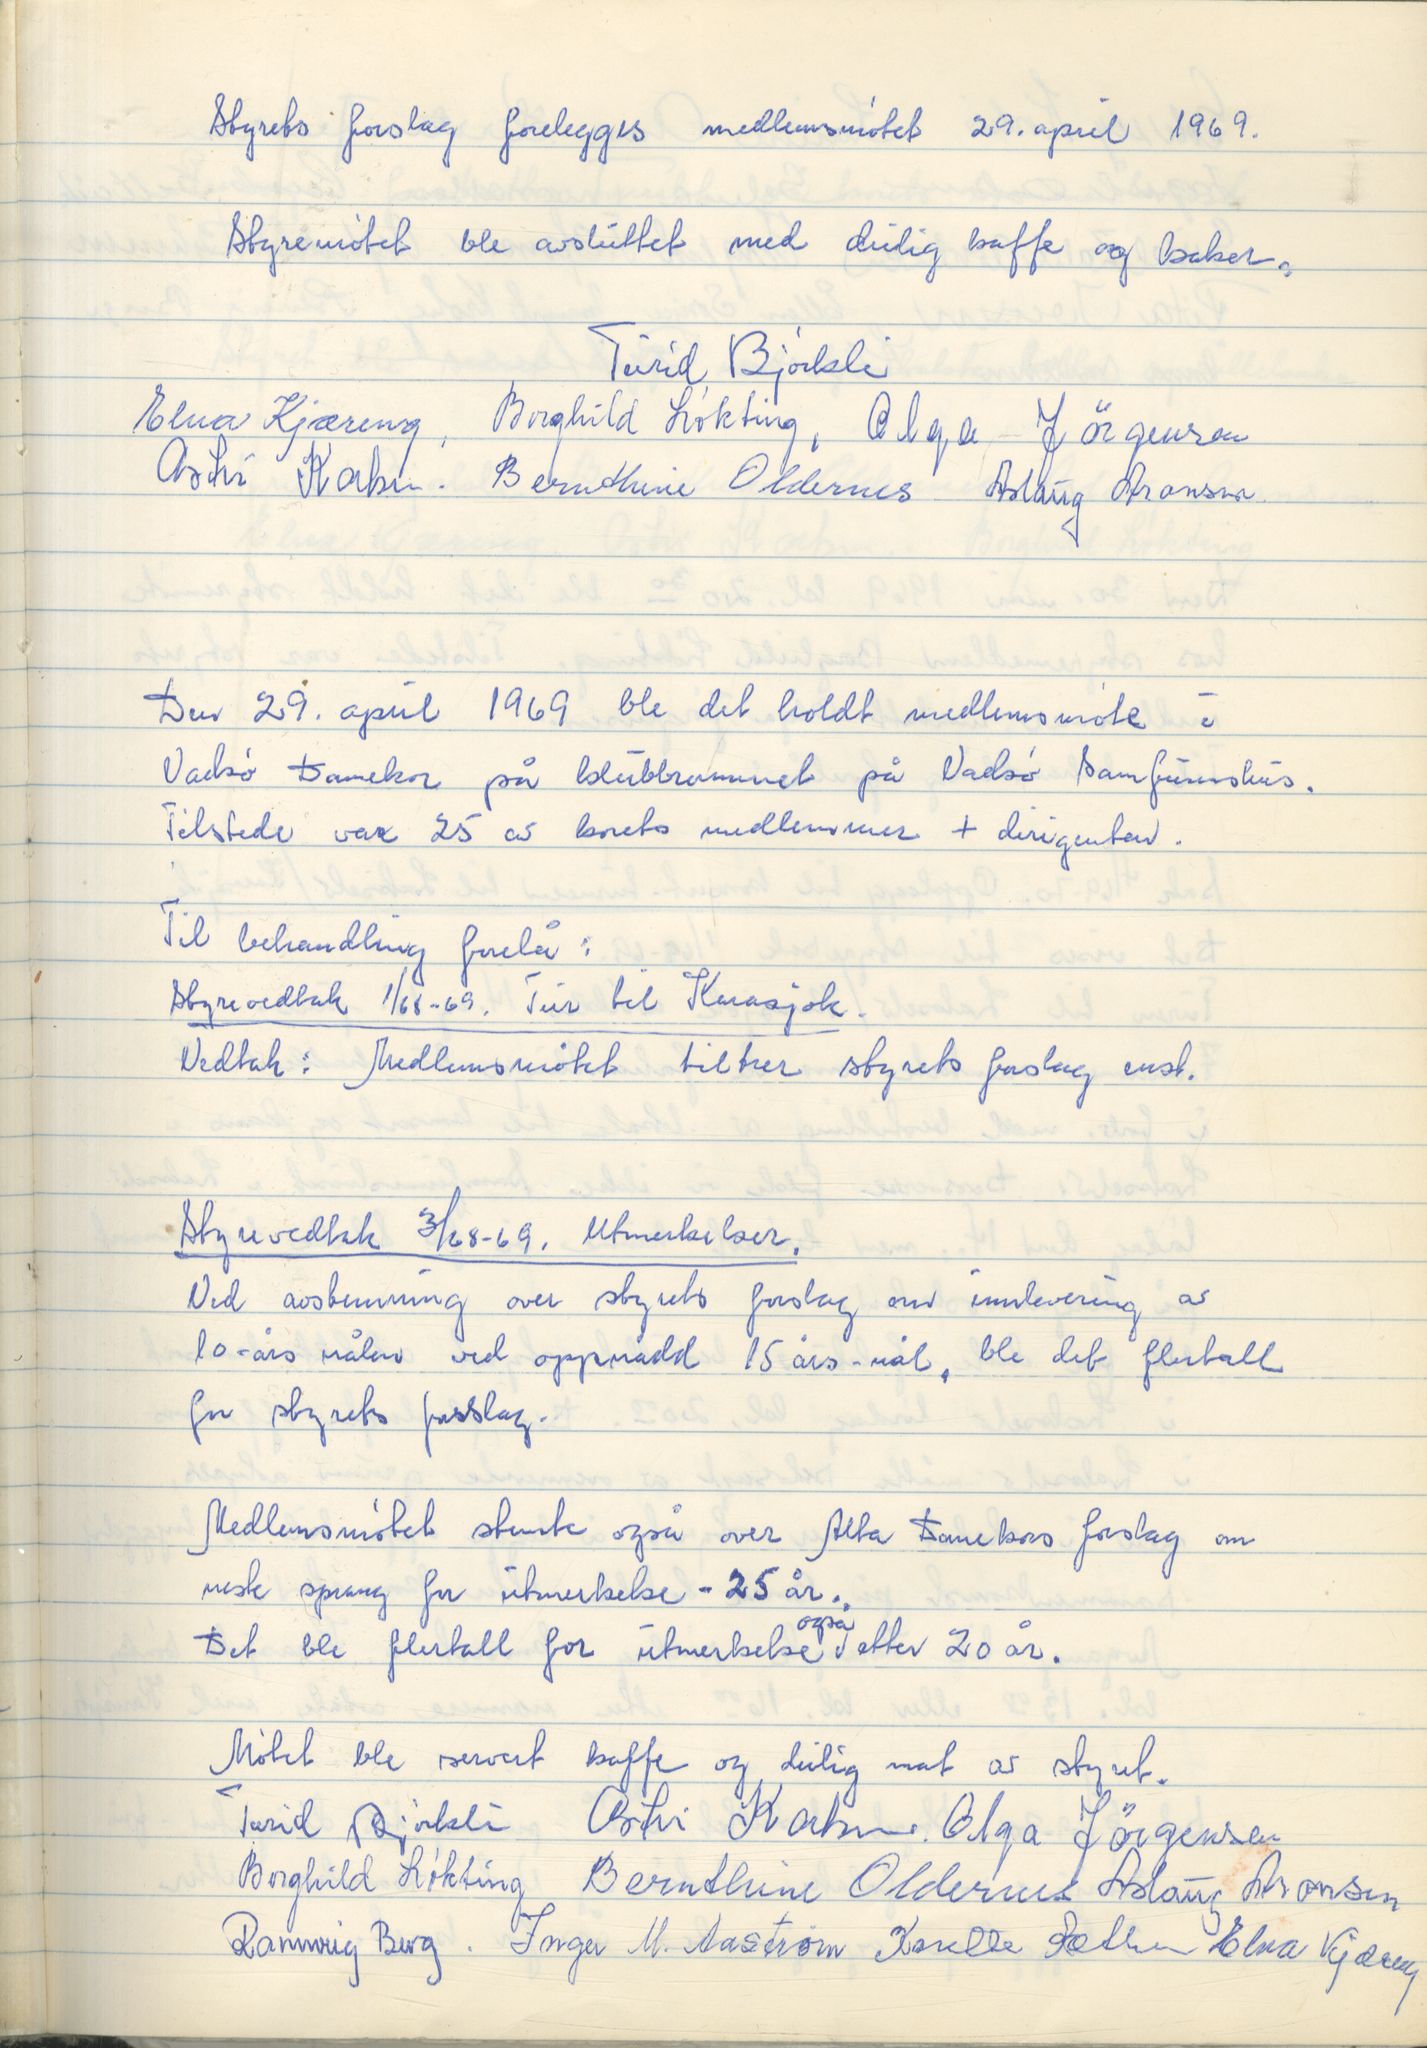 Styrets forslag forelegges medlemsmötet 29. april 1969.
Styremötet ble avsluttet med deilig kaffe og kaker.
Turid Björkli
Elna Kjæreng, Borghild Lökting, Olga Jörgensen
Astri Karbu. Bernthine Oldernes Aslaug Aronsen
Den 29. april 1969 ble det holdt medlemsmöte i
Vadsö Damekor på klubbrommet på Vadsö Samfunnshus.
Tilstede var 25 av korets medlemmer + dirigenten.
Til behandling forelå:
Styrevedtak 1/68-69. Tur til Karasjok.
Vedtak: Medlemsmötet tiltrer styrets forslag enst.
Styrevedtak 3/68-69. Utmerkelser.
Ved avstemming over styrets forslag om innlevering av
10-års nålen ved oppnådd 15 års-nål, ble det flertall
for styrets forslag.
Medlemsmötet stemte også over Alta Damekors forslag om
neste sprang for utmerkelse - 25 år.
Det ble flertall for utmerkelse også etter 20 år.
Mötet ble servert kaffe og deilig mat av styret.
Turid Björkli Astri Olga Jörgensen
Borghild Lökting Bernthine Oldernes Aslaug Aronsen
Rannveig Berg. Inger M. Aaström Elna Kjæreng